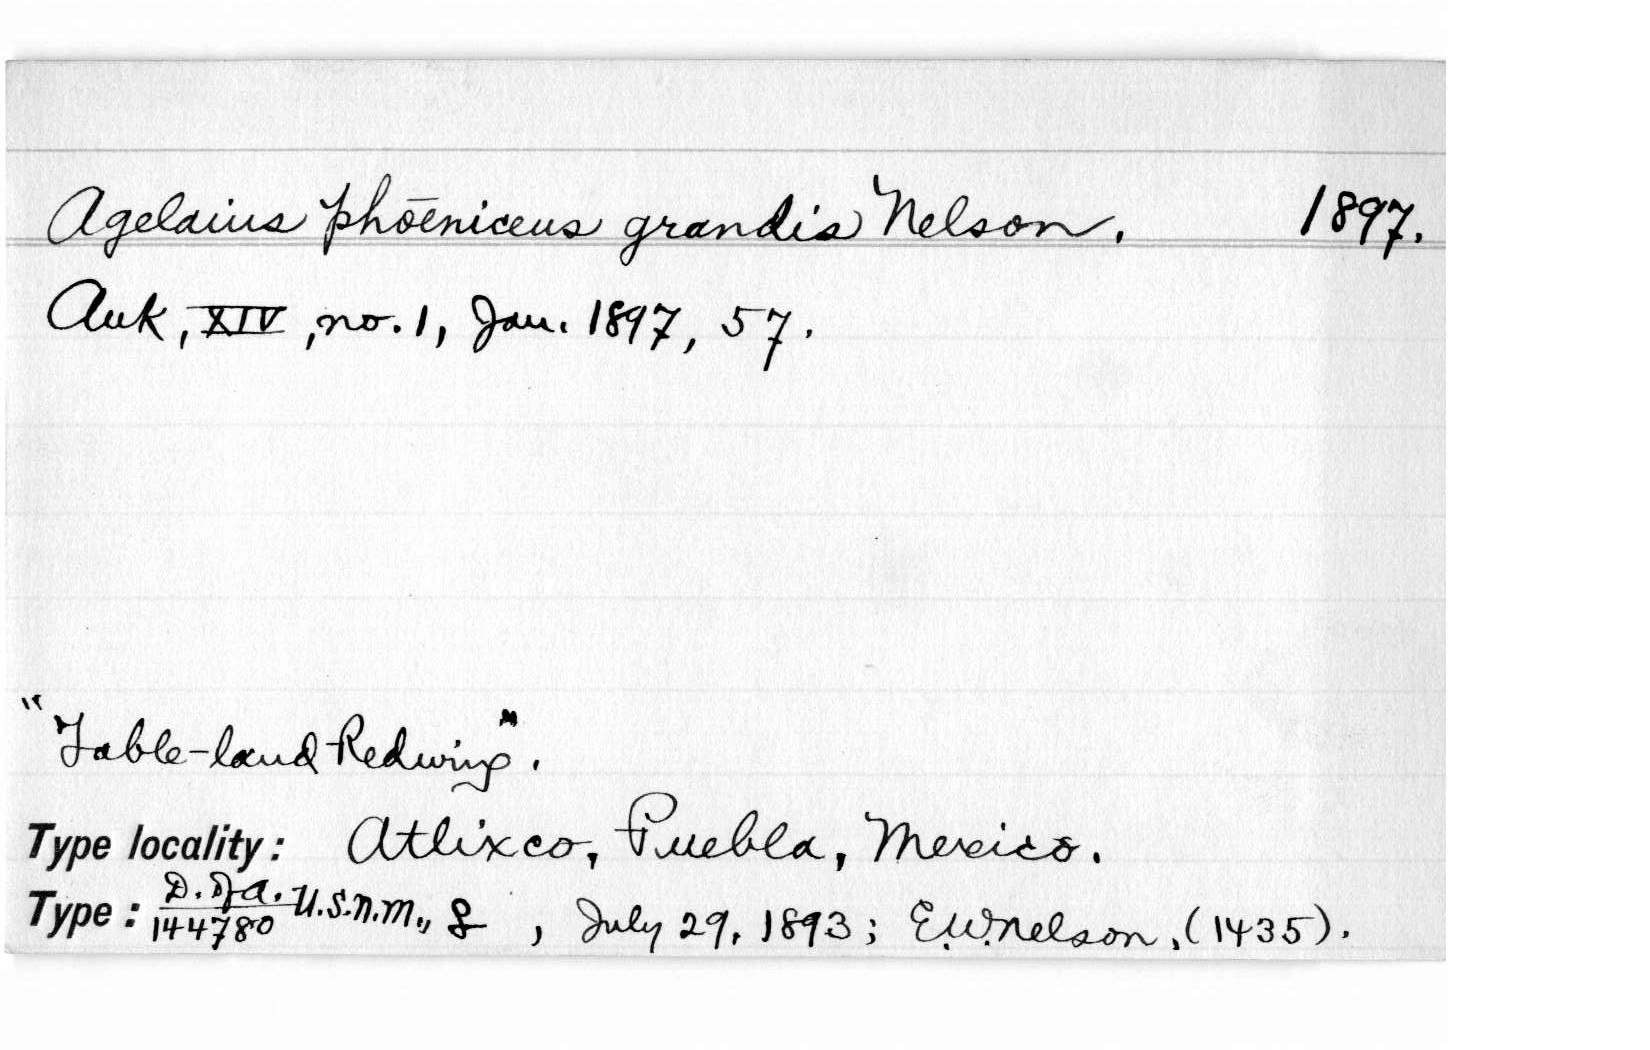 Agelaius phoeniceus grandis Nelson. 1897.
Auk, XIV, no. 1, Jan. 1897, 57.
"Table-land Redwing".
Type locality: Atlixco, Puebla, Mexico.
Type: D. of A. / 144780 U.S.N.M., ♀, July 29, 1893; E.W. Nelson, (1435).